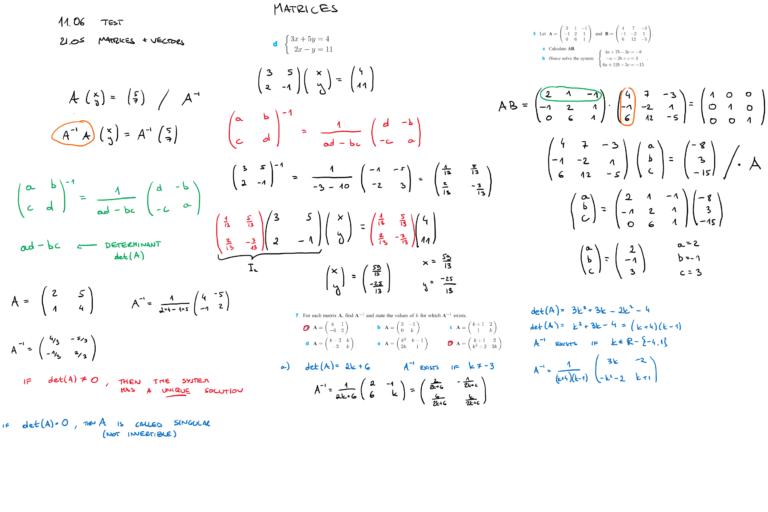 MATRICES
11.06 TEST
21.05 MATRICES + VECTORS
A (x y) = (5 7) / A⁻¹
A⁻¹ A (x y) = A⁻¹ (5 7)
(a b c d)⁻¹ = 1/(ad-bc) (d -b -c a)
ad-bc ← DETERMINANT
det(A)
A = (2 5 1 4) A⁻¹ = 1/(2·4-1·5) (4 -5 -1 2)
A⁻¹ = (4/3 -5/3 -1/3 2/3)
IF det(A) ≠ 0, THEN THE SYSTEM
HAS A UNIQUE SOLUTION
IF det(A)=0, THEN A IS CALLED SINGULAR
(NOT INVERTIBLE)
d { 3x + 5y = 4
2x − y = 11
(3 5 2 -1) (x y) = (4 11)
(a b c d)⁻¹ = 1/(ad-bc) (d -b -c a)
(3 5 2 -1)⁻¹ = 1/(-3-10) (-1 -5 -2 3) = (1/13 5/13 2/13 -3/13)
(1/13 5/13 2/13 -3/13) (3 5 2 -1) (x y) = (1/13 5/13 2/13 -3/13) (4 11)
I₂
(x y) = (59/13 -25/13) x = 59/13
y = -25/13
7 For each matrix A, find A⁻¹ and state the values of k for which A⁻¹ exists.
a) det(A) = 2k+6 A⁻¹ EXISTS IF k ≠ -3
A⁻¹ = 1/(2k+6) (2 -1 6 k) = (2/(2k+6) -1/(2k+6) 6/(2k+6) k/(2k+6))
Let A = (2 1 −1 −1 2 1 0 6 1) and B = (4 7 −3 −1 −2 1 6 12 −5).
a Calculate AB.
b Hence solve the system { 4a + 7b − 3c = −8
−a − 2b + c = 3
6a + 12b − 5c = −15
AB = (2 1 -1 -1 2 1 0 6 1) · (4 7 -3 -1 -2 1 6 12 -5) = (1 0 0 0 1 0 0 0 1)
(4 7 -3 -1 -2 1 6 12 -5) (a b c) = (-8 3 -15) / · A
(a b c) = (2 1 -1 -1 2 1 0 6 1) (-8 3 -15)
(a b c) = (2 -1 3) a=2
b=-1
c=3
det(A) = 3k²+3k-2k²-4
det(A) = k²+3k-4 = (k+4)(k-1)
A⁻¹ EXISTS IF k∈R-{-4,1}
A⁻¹ = 1/((k+4)(k-1)) (3k -2 -k²-2 k+1)